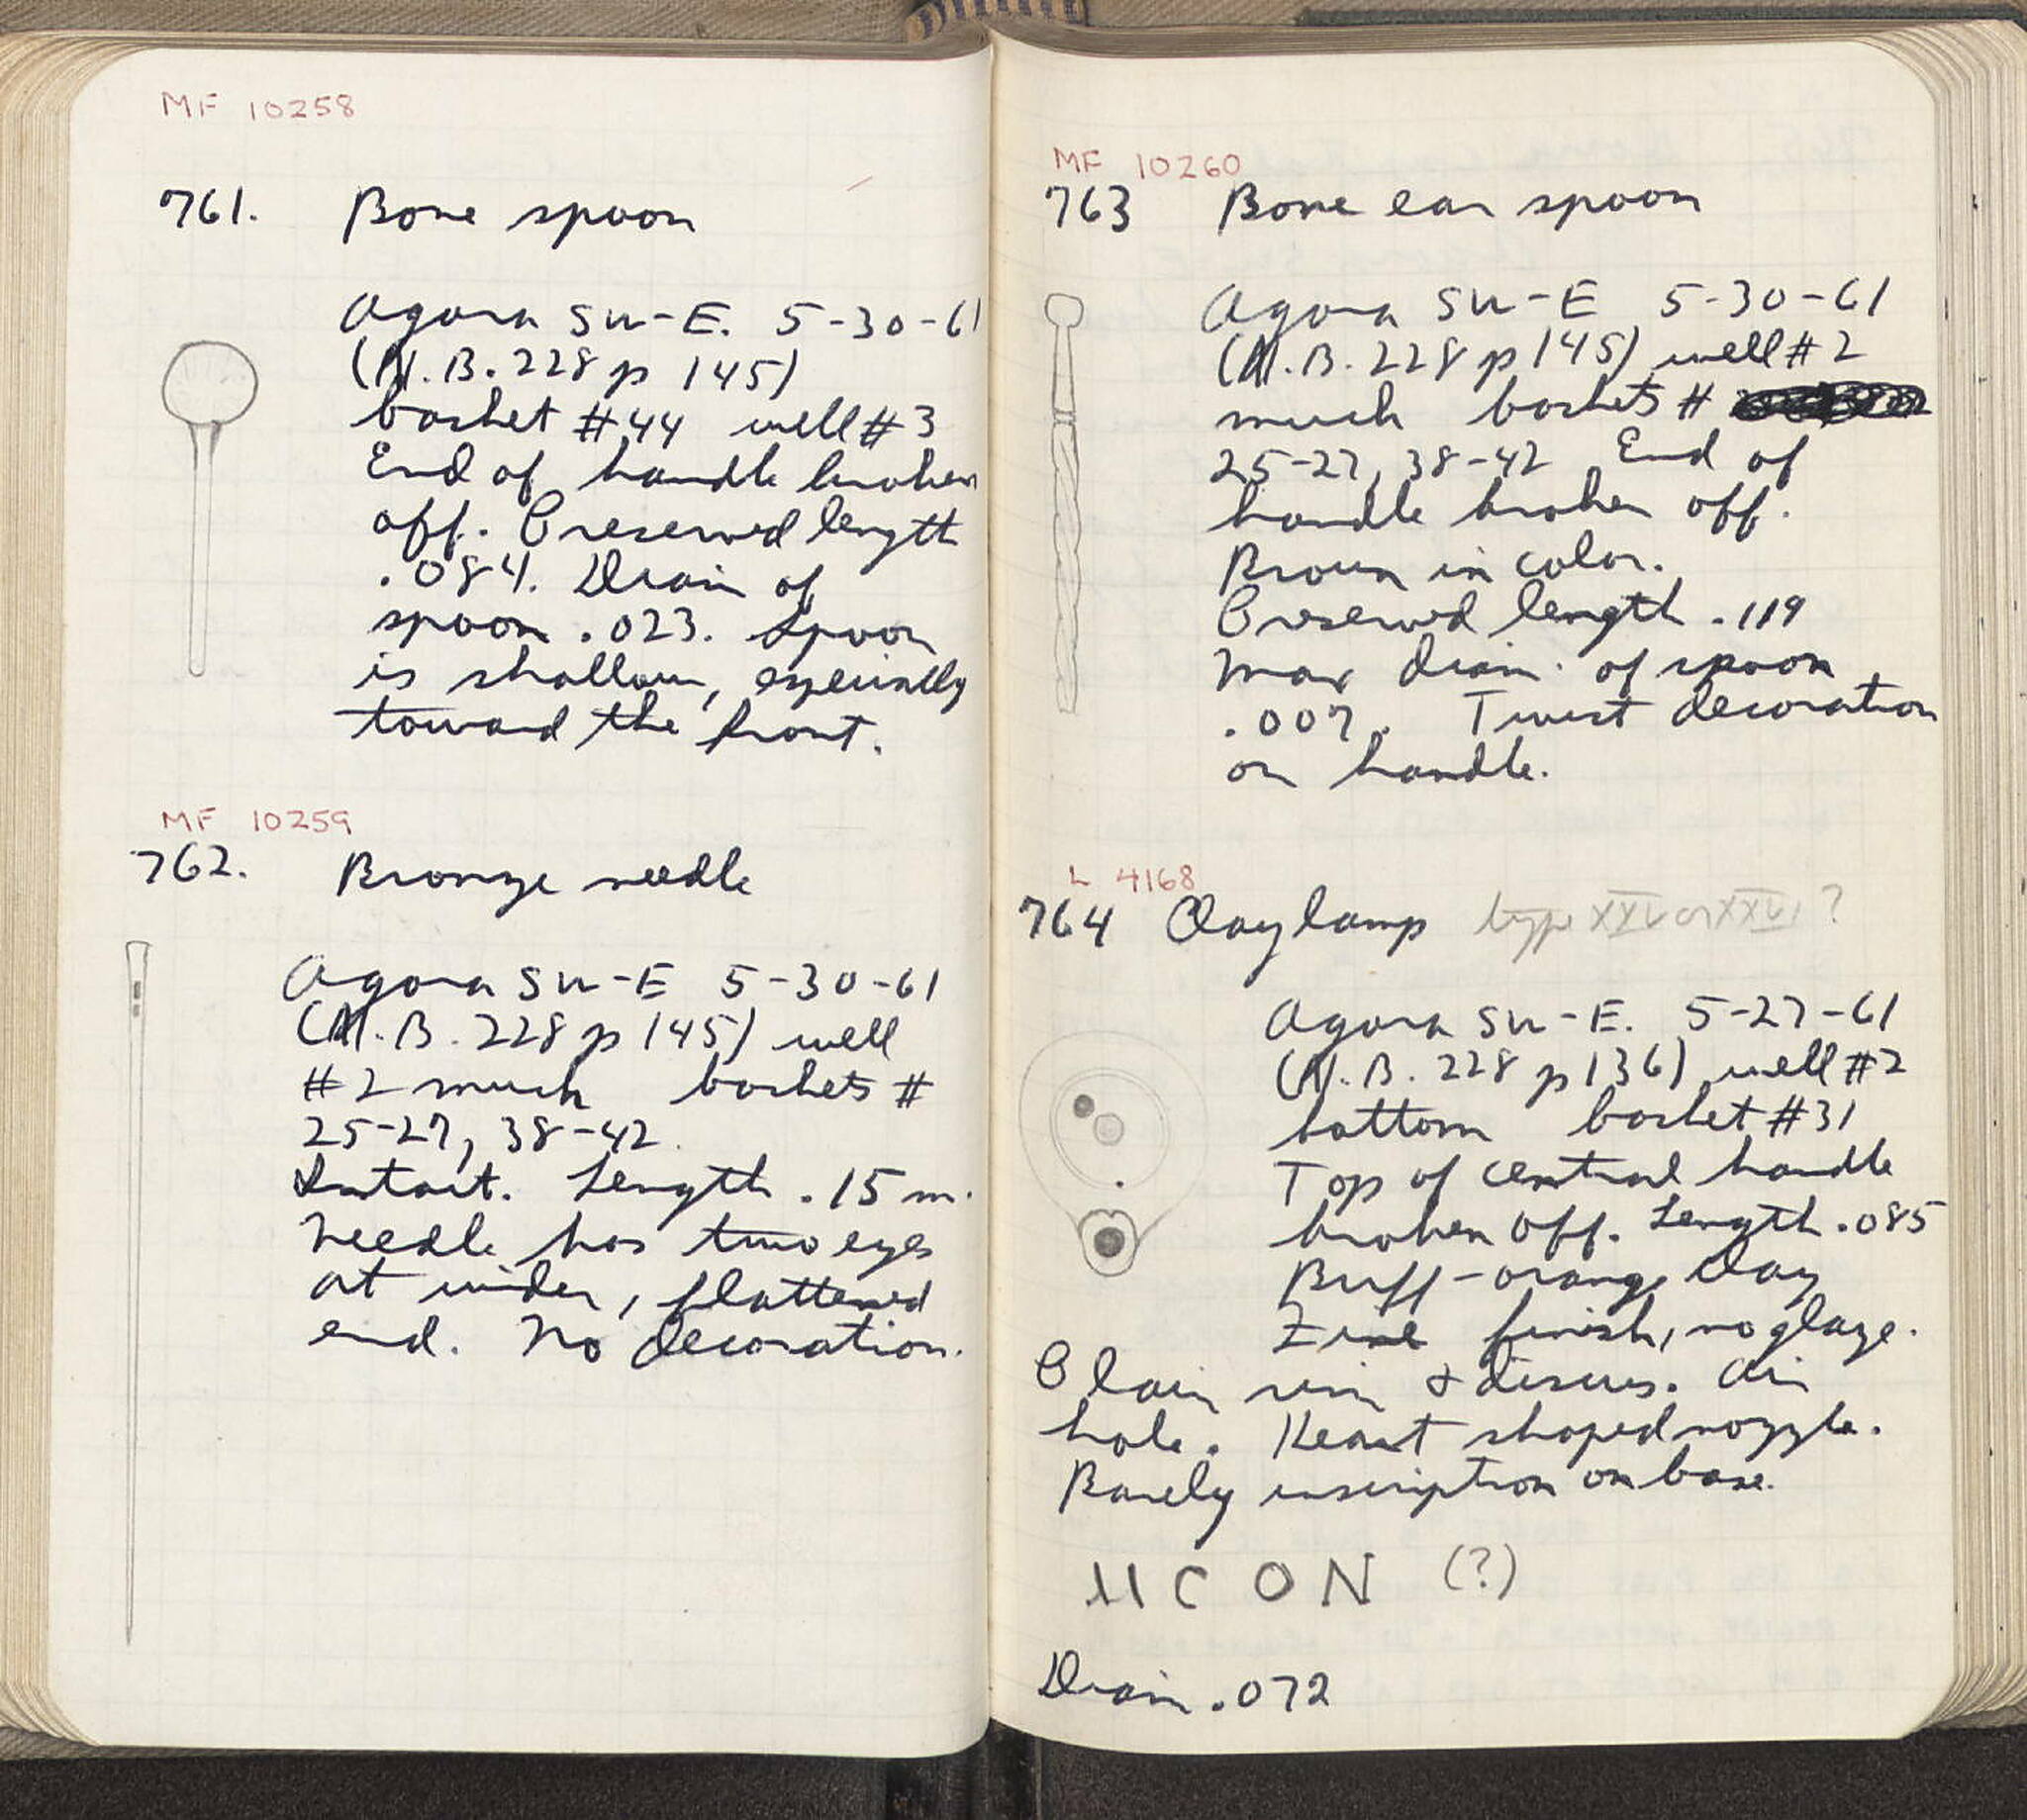 MF 10258
761. Bone spoon
Agora SW-E. 5-30-61
(N.B. 228 p 145)
basket #44 well #3
End of handle broken
off. Preserved length
.084. Diam of
spoon .023. Spoon
is shallow, especially
toward the front.
MF 10259
762. Bronze needle
Agora SW-E 5-30-61
(N.B. 228 p 145) well
#2 much baskets #
25-27, 38-42.
Intact. Length .15 m.
Needle has two eyes
at wider, flattened
end. No decoration.
MF 10260
763 Bone ear spoon
Agora SW-E 5-30-61
(N.B. 228 p 145) well #2
much baskets #
25-27, 38-42 End of
handle broken off.
Brown in color.
Preserved length .119
Max diam. of spoon
.007. Twist decoration
on handle.
L 4168
764 Clay lamp type XXV or XXVI ?
Agora SW-E. 5-27-61
(N.B. 228 p 136) well #2
bottom basket #31
Top of central handle
broken off. Length .085
Buff-orange Clay
finish, no glaze.
Plain rim & discus. Air
hole. Heart shaped nozzle.
Barely inscription on base.
C O N (?)
Diam .072